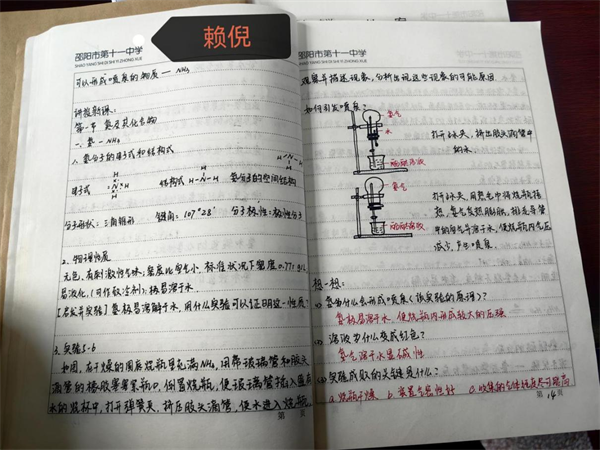 赖倪
邵阳市第十一中学
SHAO YANG SHI DI SHI YI ZHONG XUE
可以形成喷泉的物质 — NH₃
讲授新课:
第一节 氨及其化合物
一、氨—NH₃
1. 氨分子的电子式和结构式
电子式
结构式 H-N-H
氨分子的空间结构
分子形状: 三角锥形 键角: 107°28′ 分子极性: 极性分子
2. 物理性质
无色、有刺激性气味; 密度比空气小, 标准状况下密度0.771g/L
易液化, (可作致冷剂); 极易溶于水。
[启发并实验] 氨极易溶解于水, 用什么实验可以证明这一性质?
3. 实验1-6
如图, 在干燥的圆底烧瓶里充满NH₃, 用带玻璃管和胶头
滴管的橡胶塞塞紧瓶口, 倒置烧瓶, 使玻璃管插入盛有
水的烧杯中, 打开弹簧夹, 挤压胶头滴管, 使水进入烧瓶,
第 页
邵阳市第十一中学
观察并描述现象, 分析出现这些现象的可能原因
如何引发喷泉?
氨气
水
打开止水夹, 挤出胶头滴管中
的水。
酚酞溶液
氨气
打开止水夹, 用热毛巾将烧瓶捂
热, 氨气受热膨胀, 赶走导管
中的空气与水接触, 使烧瓶内气压
减少, 产生喷泉。
酚酞溶液
想一想:
(1) 氨为什么会形成喷泉(该实验的原理)?
氨极易溶于水, 使烧瓶内形成较大的压强
(2) 溶液为什么变成红色?
氨气溶于水显碱性
(3) 实验成败的关键是什么?
a 烧瓶干燥 b 装置气密性好 c 收集的气体纯度尽可能高
第 14 页